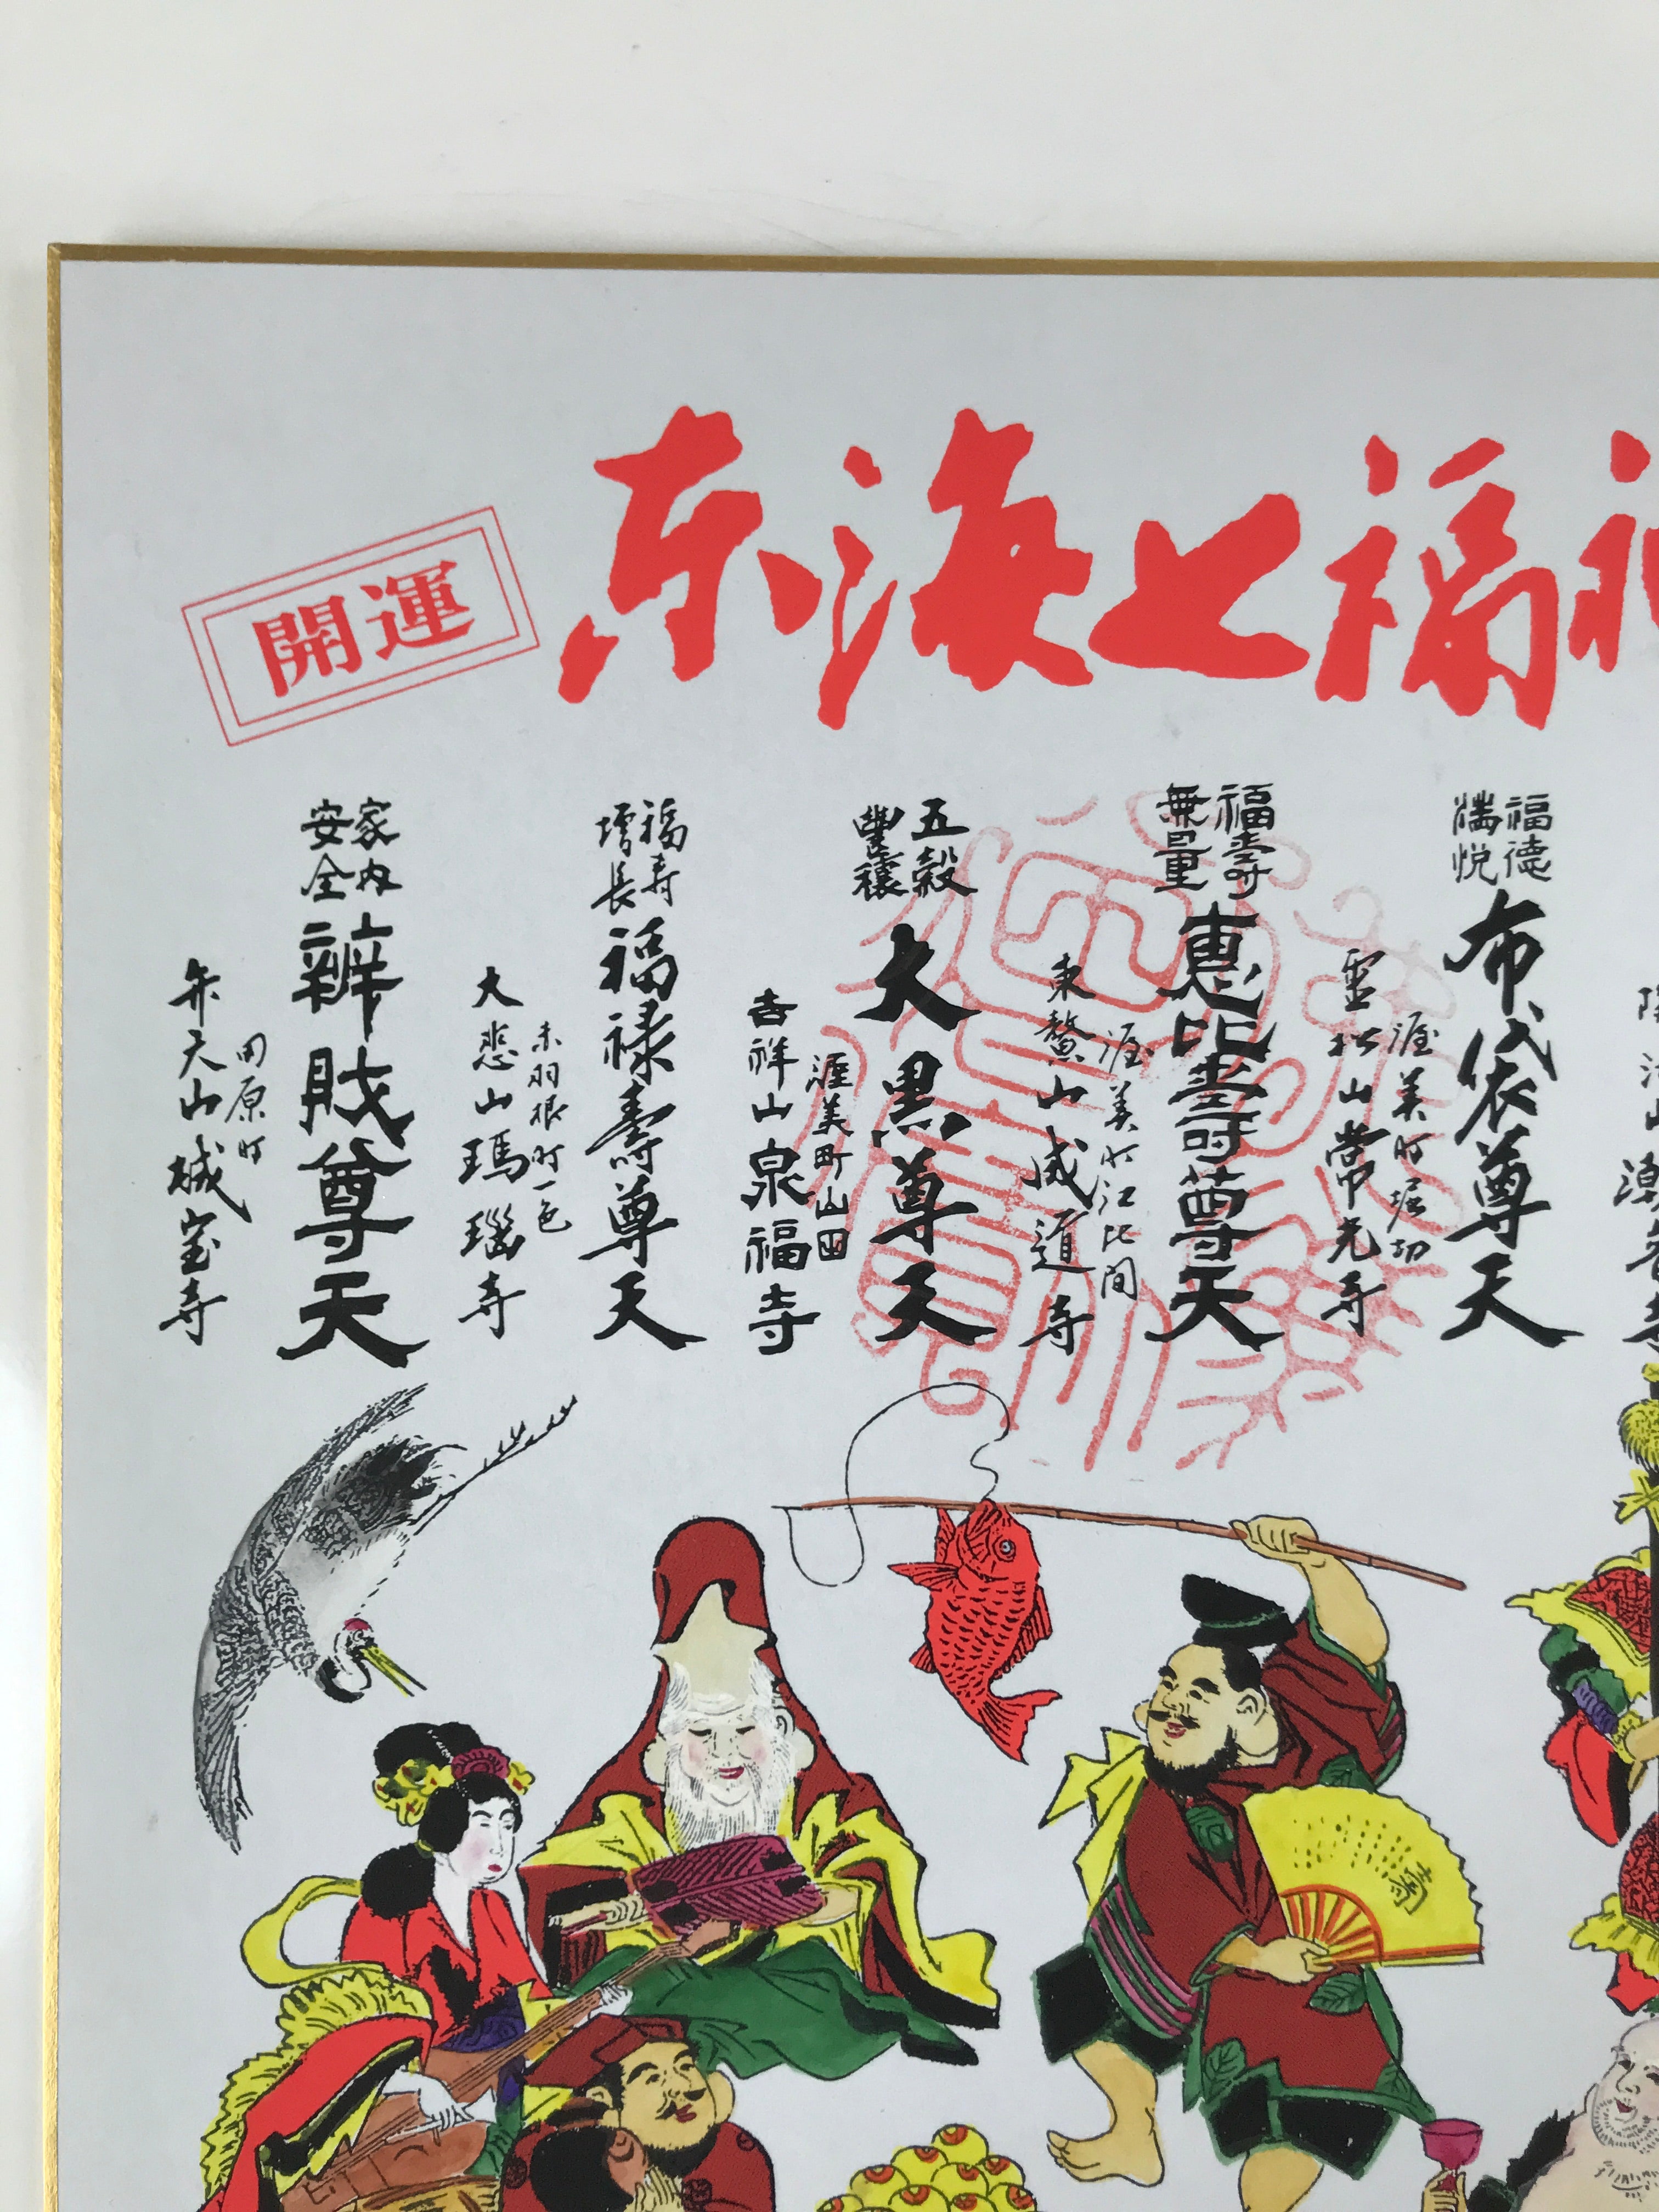 開運
東海七福神
福徳
満悦
布袋尊天
渥美町堀切
霊松山常光寺
福壽
無量
恵比壽尊天
渥美町江比間
東鰲山成道寺
五穀
豊穣
大黒尊天
渥美町山田
吉祥山泉福寺
福寿
増長
福禄壽尊天
赤羽根町一色
大悲山瑪瑙寺
家内
安全
辨財尊天
田原町
弁天山城宝寺
壽